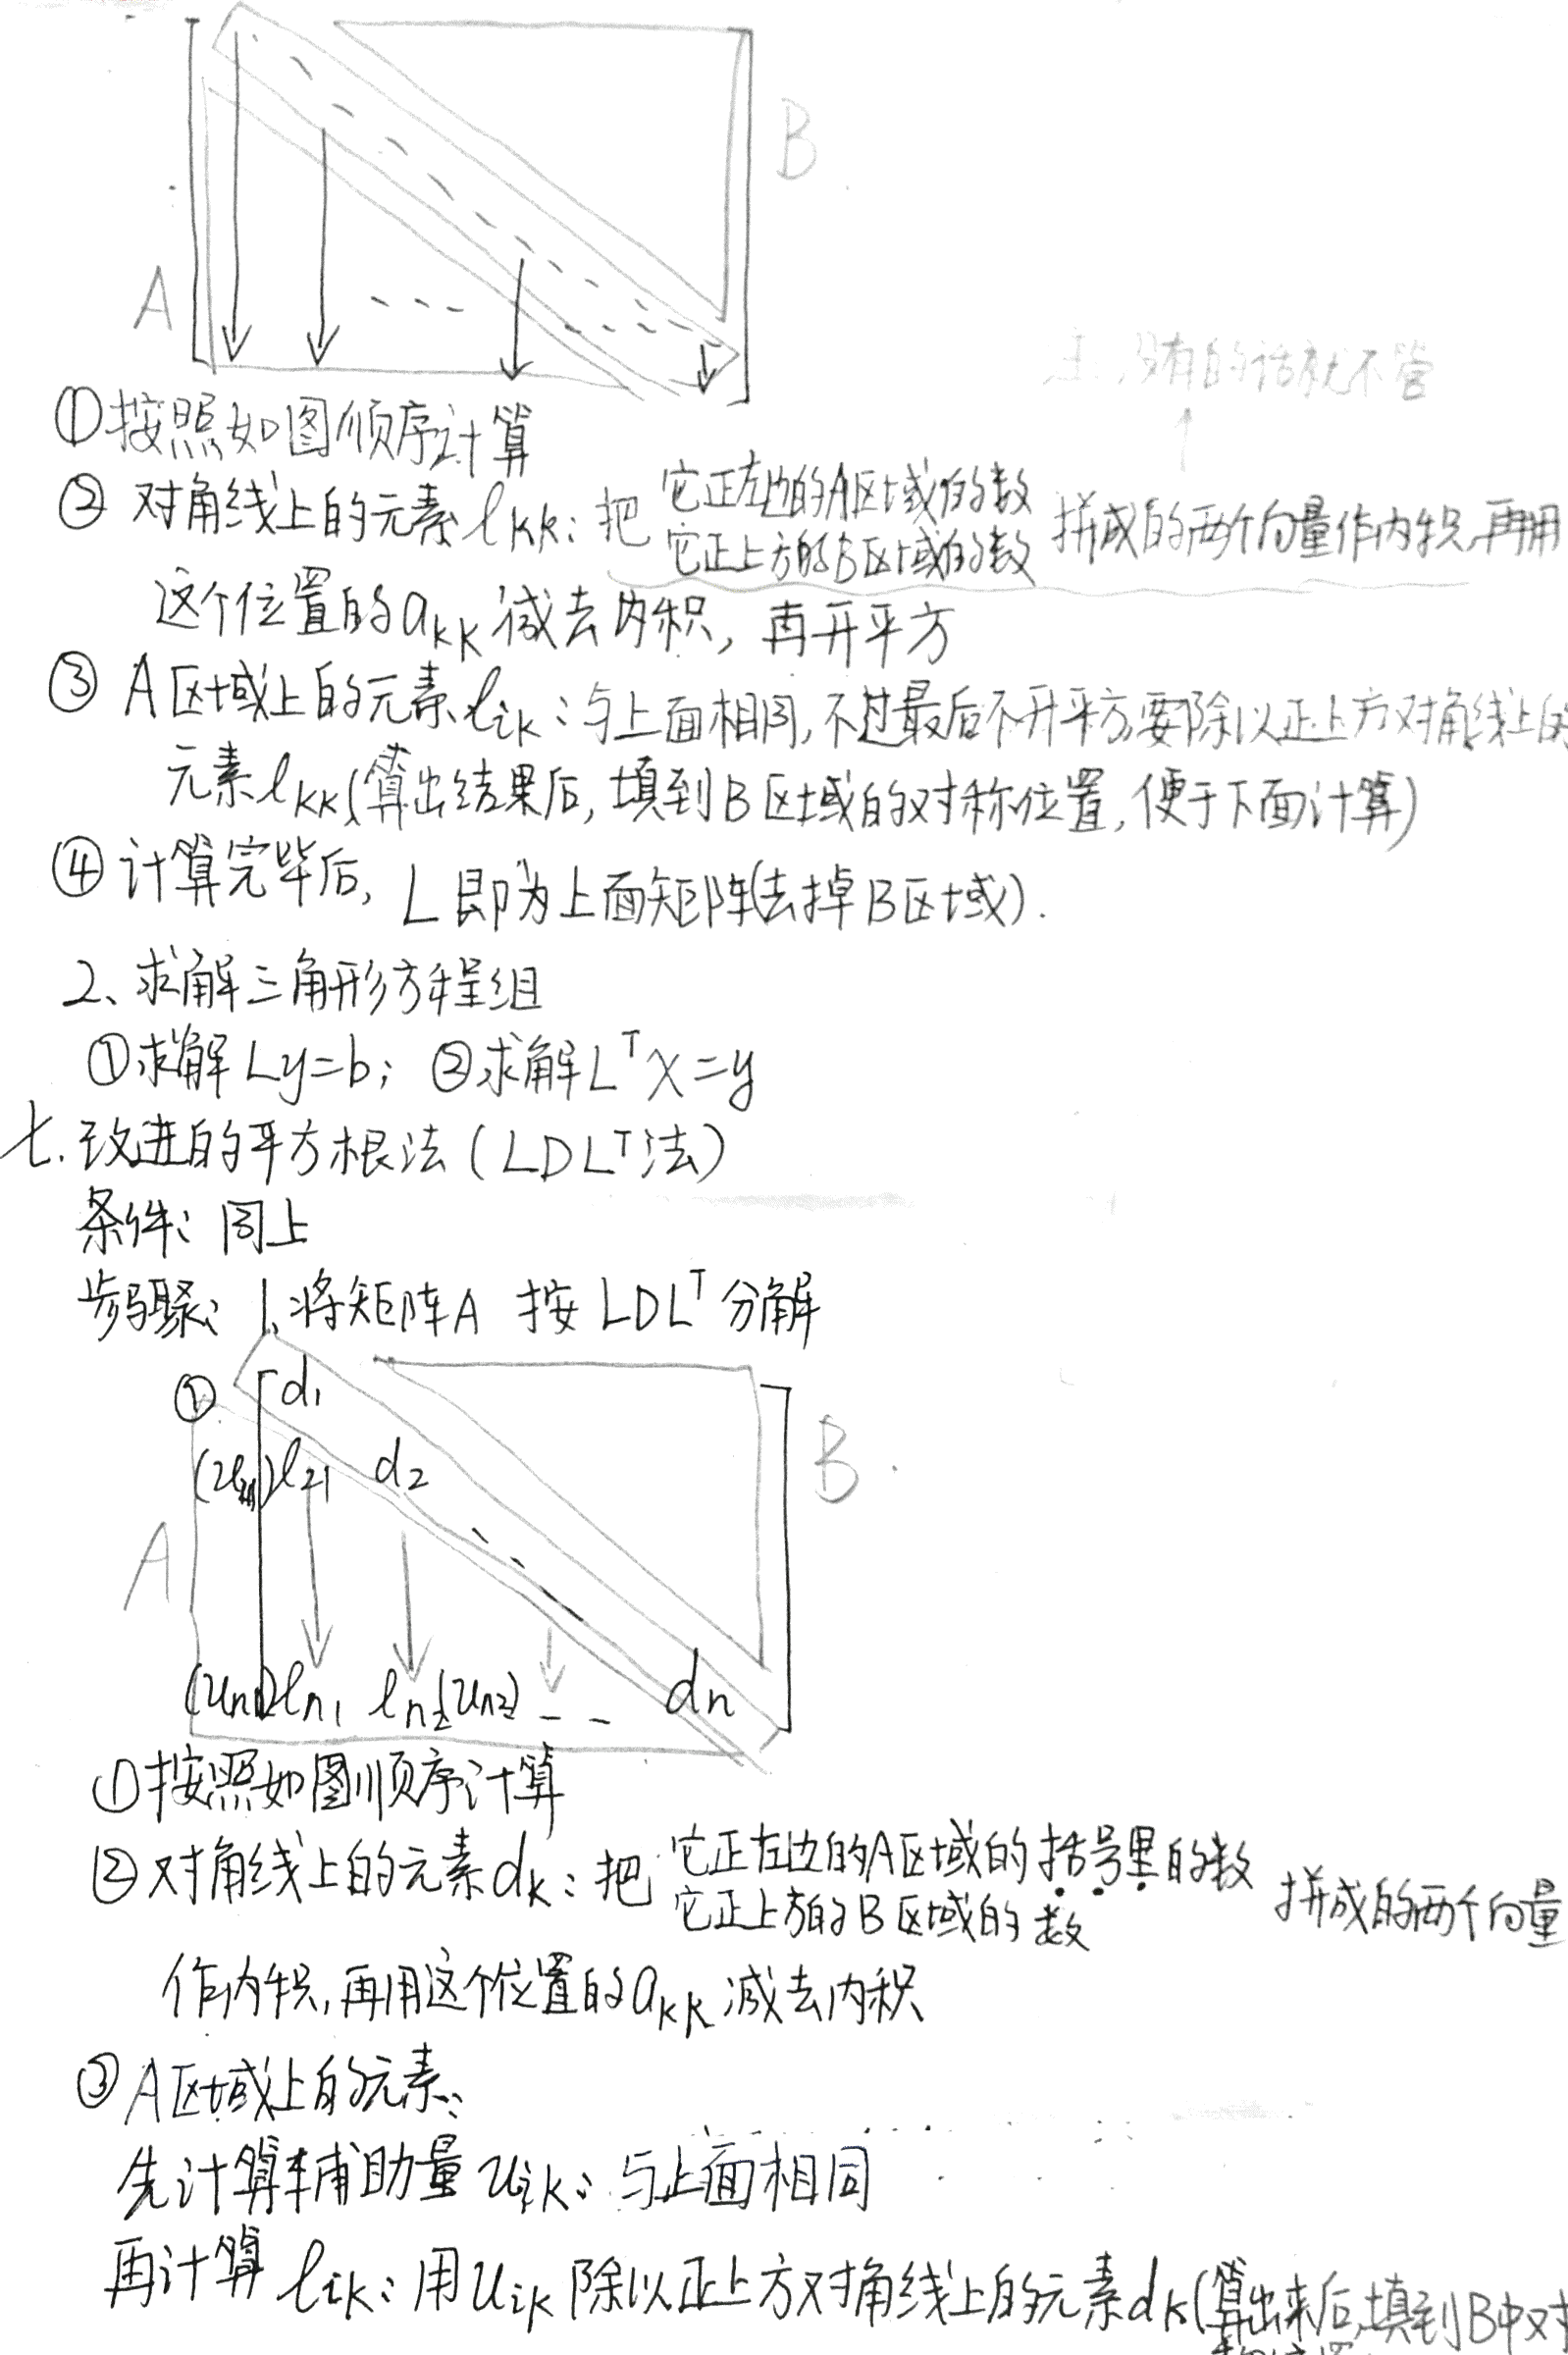 B
A
注:没有的话就不管
①按照如图顺序计算
②对角线上的元素lkk:把 它正左边的A区域的数 拼成的两个向量作内积,再用
它正上方的B区域的数
这个位置的akk减去内积,再开平方
③A区域上的元素lik:与上面相同,不过最后不开平方,要除以正上方对角线上的
元素lkk(算出结果后,填到B区域的对称位置,便于下面计算)
④计算完毕后,L即为上面矩阵(去掉B区域).
2、求解三角形方程组
①求解Ly=b; ②求解L^T x=y
七.改进的平方根法(LDL^T法)
条件:同上
步骤:1.将矩阵A 按LDL^T分解
① d1
B
(u21)l21 d2
A
(un1)ln1 ln2(un2) -- dn
①按照如图顺序计算
②对角线上的元素dk:把 它正左边的A区域的括号里的数 拼成的两个向量
它正上方的B区域的数
作内积,再用这个位置的akk减去内积
③A区域上的元素:
先计算辅助量uik:与上面相同
再计算lik:用uik除以正上方对角线上的元素dk(算出来后,填到B中对